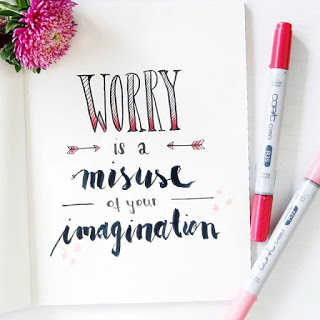 WORRY
is a
misuse
of your
imagination
COPIC
ciao
COPIC
ciao